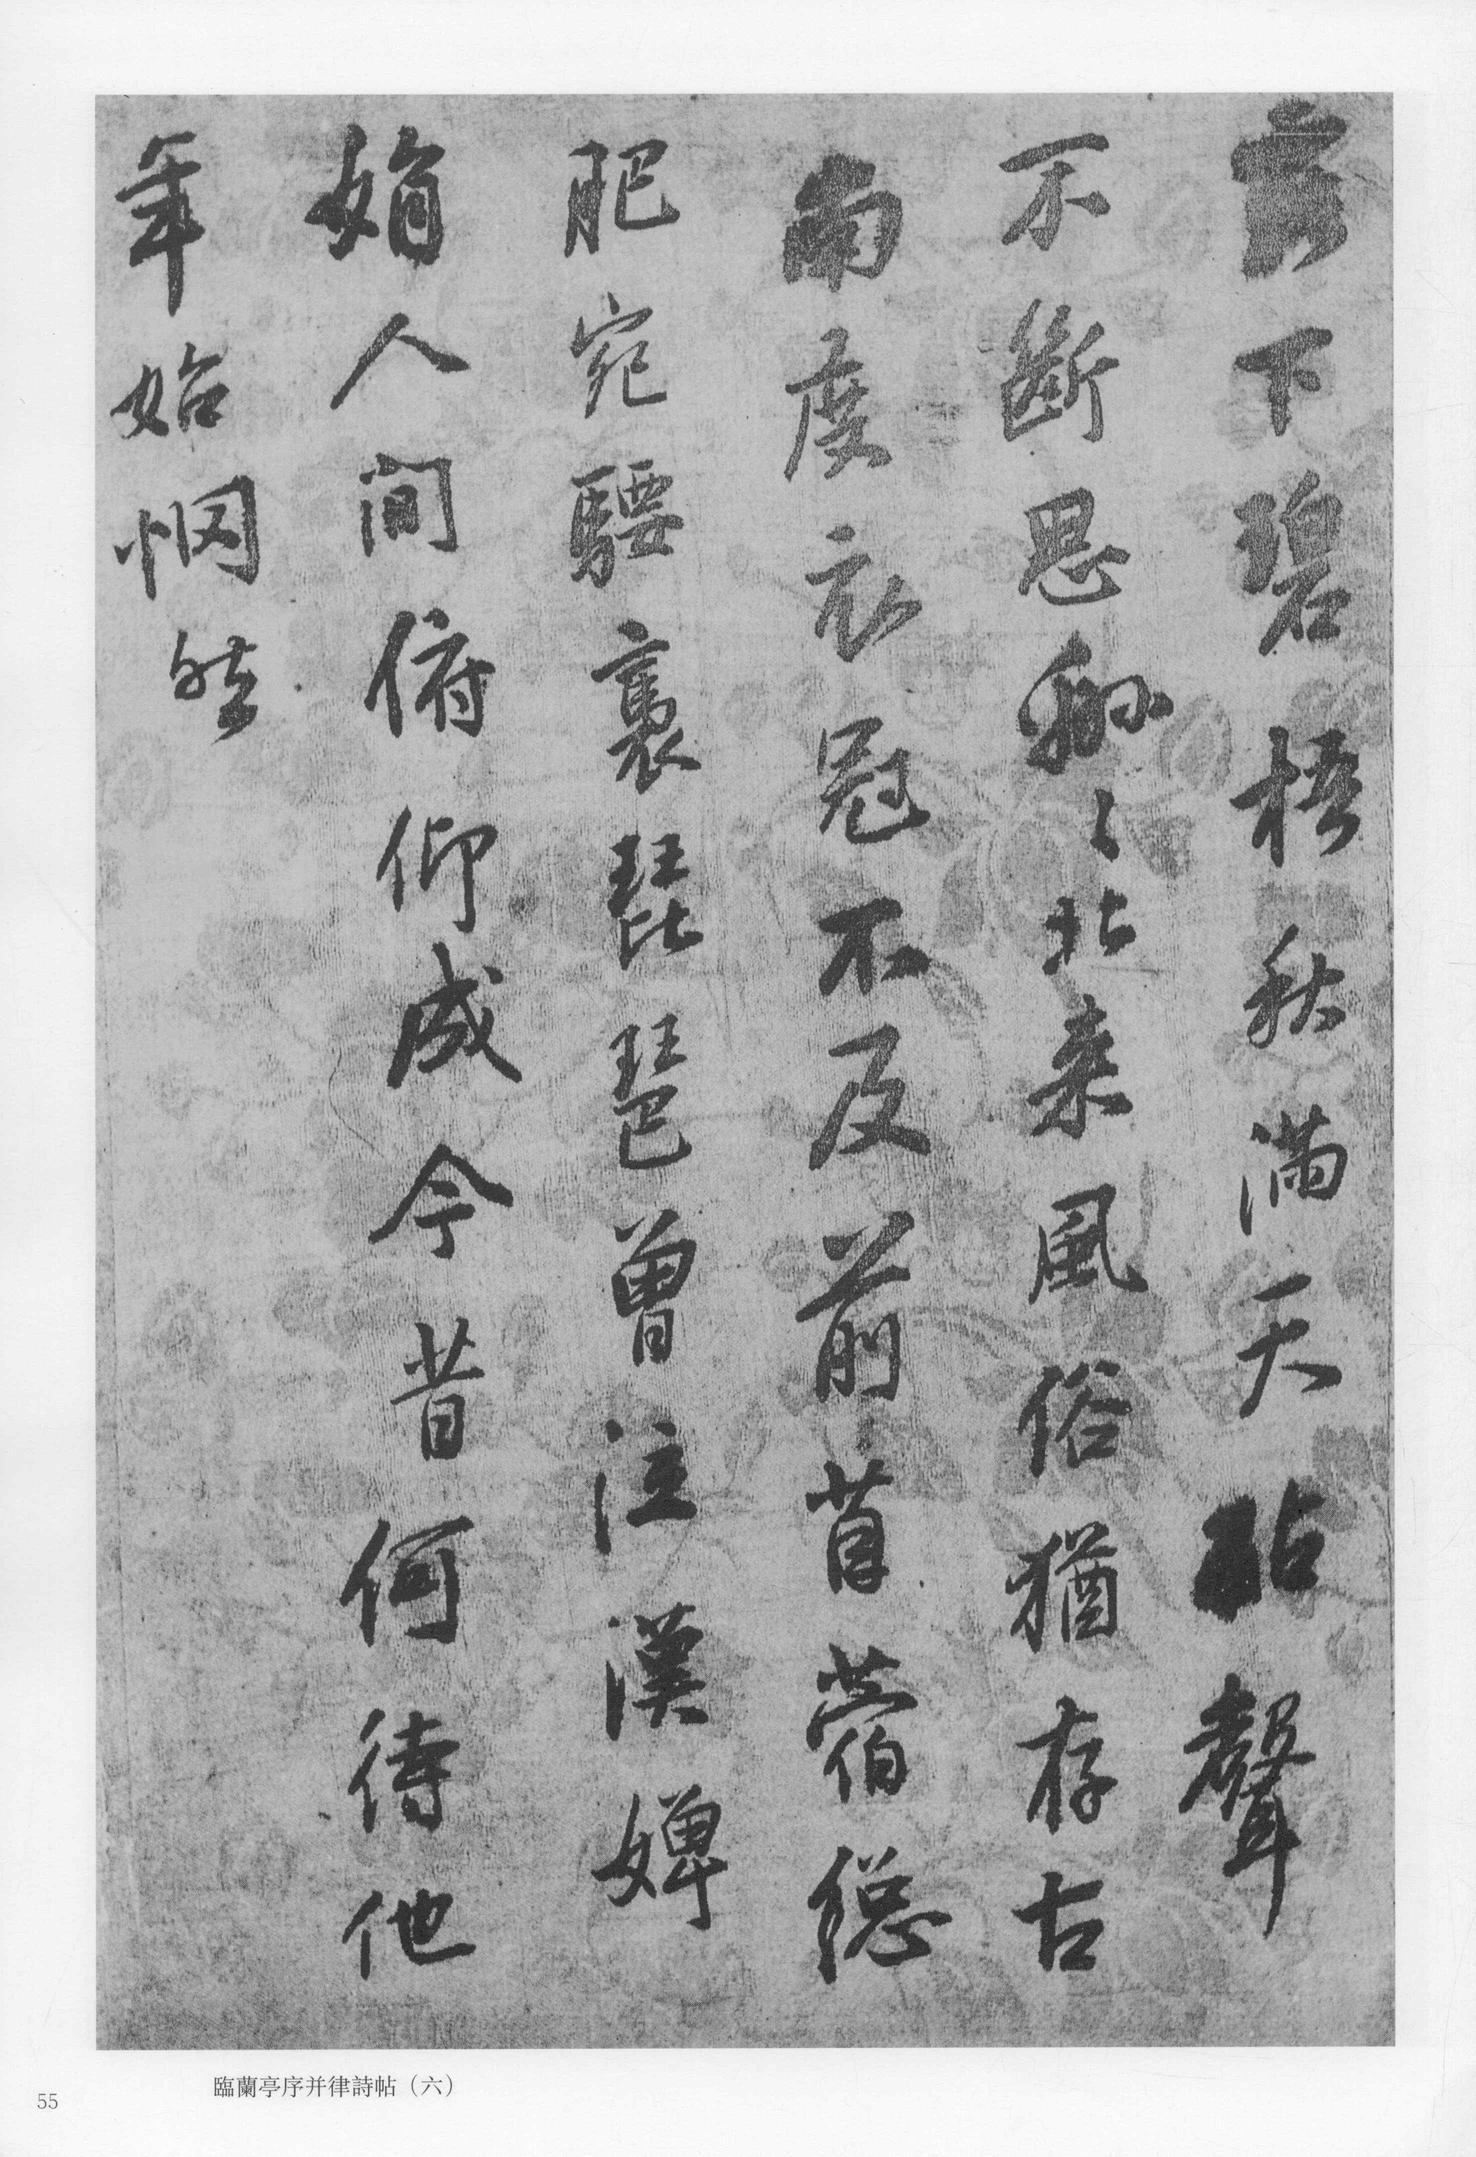 露下碧梧秋滿天砧聲
不斷思綿〻北来風俗猶存古
南度衣冠不及前苜蓿緫
肥宛騕褭琵琶曾泣漢嬋
娟人間俯仰成今昔何待他
年始惘然
臨蘭亭序并律詩帖（六）
55